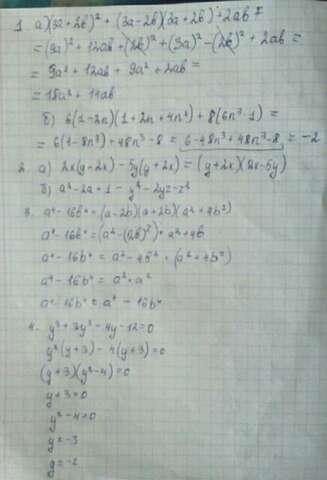 1. а) (3a+2b)² + (3a-2b)(3a+2b) + 2ab =
= (3a)² + 12ab + (2b)² + (3a)² - (2b)² + 2ab =
= 9a² + 12ab + 9a² + 2ab =
= 18a² + 14ab
б) 6(1-2n)(1+2n+4n²) + 8(6n³-1) =
= 6(1-8n³) + 48n³ - 8 = 6-48n³+48n³-8 = -2
2. а) 2x(y-2x) - 5y(y+2x) = (y+2x)(2x-5y)
б) a²-2a+1 - y²-2yz-z²
3. a⁴-16b⁴ = (a-2b)(a+2b)(a²+4b²)
a⁴-16b⁴ = (a²-(2b)²) · a²+4b
a⁴-16b⁴ = a²-4b² · (a²+4b²)
a⁴-16b⁴ = a² · a²
a⁴-16b⁴ = a⁴ - 16b⁴
4. y³+3y²-4y-12=0
y²(y+3) - 4(y+3)=0
(y+3)(y²-4)=0
y+3=0
y²-4=0
y=-3
y=-2